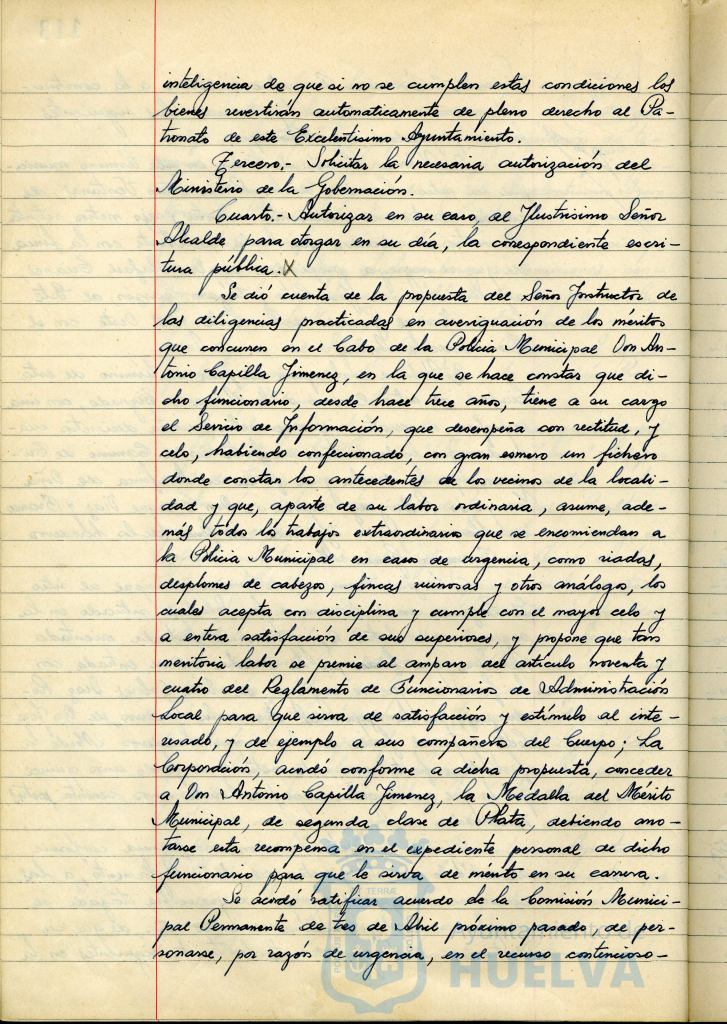 inteligencia de que si no se cumplen estas condiciones los
bienes revertirán automaticamente de pleno derecho al Pa-
tronato de este Excelentisimo Ayuntamiento.
Tercero.- Solicitar la necesaria autorización del
Ministerio de la Gobernación.
Cuarto.- Autorizar en su caso, al Ilustrisimo Señor
Alcalde para otorgar en su día, la correspondiente escri-
tura pública. X
Se dió cuenta de la propuesta del Señor Instructor de
las diligencias practicadas en averiguación de los méritos
que concurren en el Cabo de la Policia Municipal Don An-
tonio Capilla Jimenez, en la que se hace constar que di-
cho funcionario, desde hace trece años, tiene a su cargo
el Servicio de Información, que desempeña con rectitud, y
celo, habiendo confeccionado, con gran esmero un fichero
donde constan los antecedentes de los vecinos de la locali-
dad y que, aparte de su labor ordinaria, asume, ade-
más todos los trabajos extraordinarios que se encomiendan a
la Policia Municipal en casos de urgencia, como riadas,
desplomes de cabezos, fincas ruinosas y otros análogos, los
cuales acepta con disciplina y cumple con el mayor celo y
a entera satisfacción de sus superiores, y propone que tan
meritoria labor se premie al amparo del artículo noventa y
cuatro del Reglamento de Funcionarios de Administración
Local para que sirva de satisfacción y estímulo al inte-
resado, y de ejemplo a sus compañeros del Cuerpo; La
Corporación, acordó conforme a dicha propuesta, conceder
a Don Antonio Capilla Jimenez, la Medalla del Mérito
Municipal, de segunda clase de Plata, debiendo ano-
tarse esta recompensa en el expediente personal de dicho
funcionario para que le sirva de mérito en su carrera.
Se acordó ratificar acuerdo de la Comisión Munici-
pal Permanente de tres de Abril próximo pasado, de per-
sonarse, por razón de urgencia, en el recurso contencioso-
HUELVA